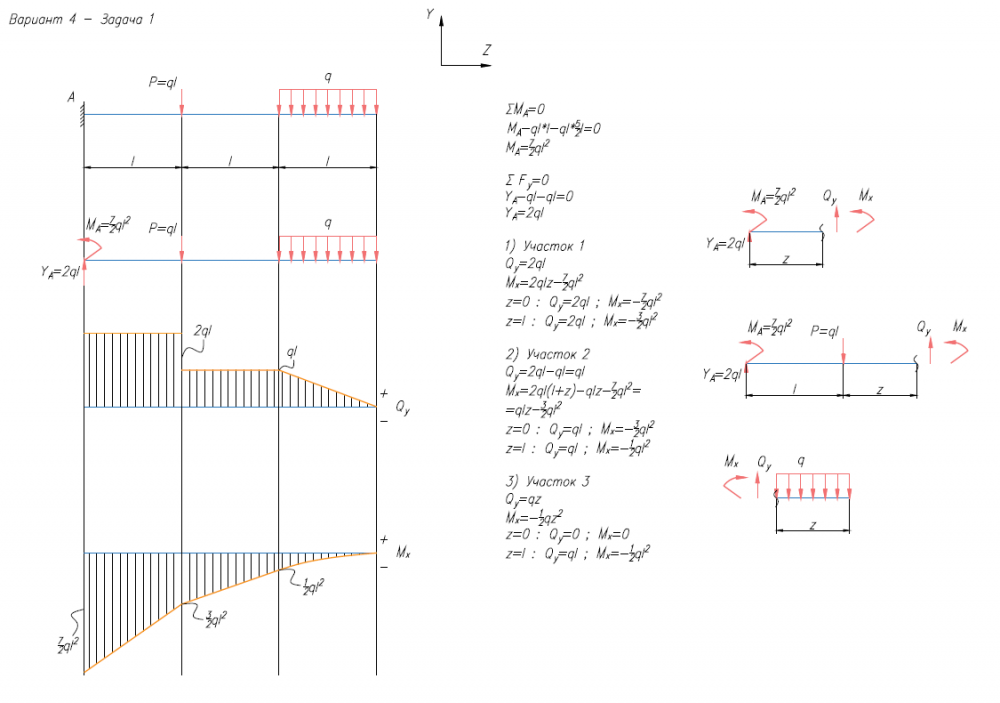 Вариант 4 - Задача 1
Y
Z
A
P=ql
q
l
l
l
M_A=7/2ql²
P=ql
q
Y_A=2ql
2ql
ql
+
Q_y
−
+
M_x
−
1/2ql²
3/2ql²
7/2ql²
ΣM_A=0
M_A−ql*l−ql*5/2l=0
M_A=7/2ql²
Σ F_y=0
Y_A−ql−ql=0
Y_A=2ql
1) Участок 1
Q_y=2ql
M_x=2qlz−7/2ql²
z=0 : Q_y=2ql ; M_x=−7/2ql²
z=l : Q_y=2ql ; M_x=−3/2ql²
2) Участок 2
Q_y=2ql−ql=ql
M_x=2ql(l+z)−qlz−7/2ql²=
=qlz−3/2ql²
z=0 : Q_y=ql ; M_x=−3/2ql²
z=l : Q_y=ql ; M_x=−1/2ql²
3) Участок 3
Q_y=qz
M_x=−1/2qz²
z=0 : Q_y=0 ; M_x=0
z=l : Q_y=ql ; M_x=−1/2ql²
M_A=7/2ql² Q_y M_x
Y_A=2ql
z
M_A=7/2ql² P=ql Q_y M_x
Y_A=2ql
l z
M_x Q_y q
z